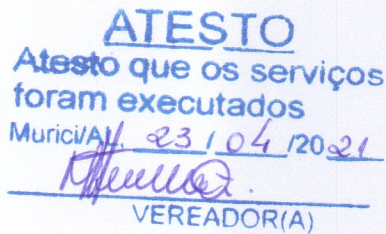 ATESTO
Atesto que os serviços
foram executados
Murici/AL, 23 / 04 /2021
VEREADOR(A)